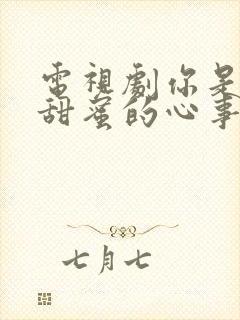 電視劇你是
甜蜜的心事
七月七